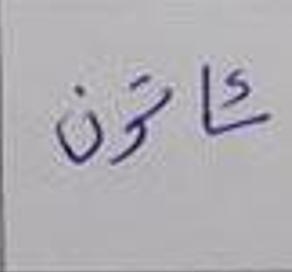 كاتون